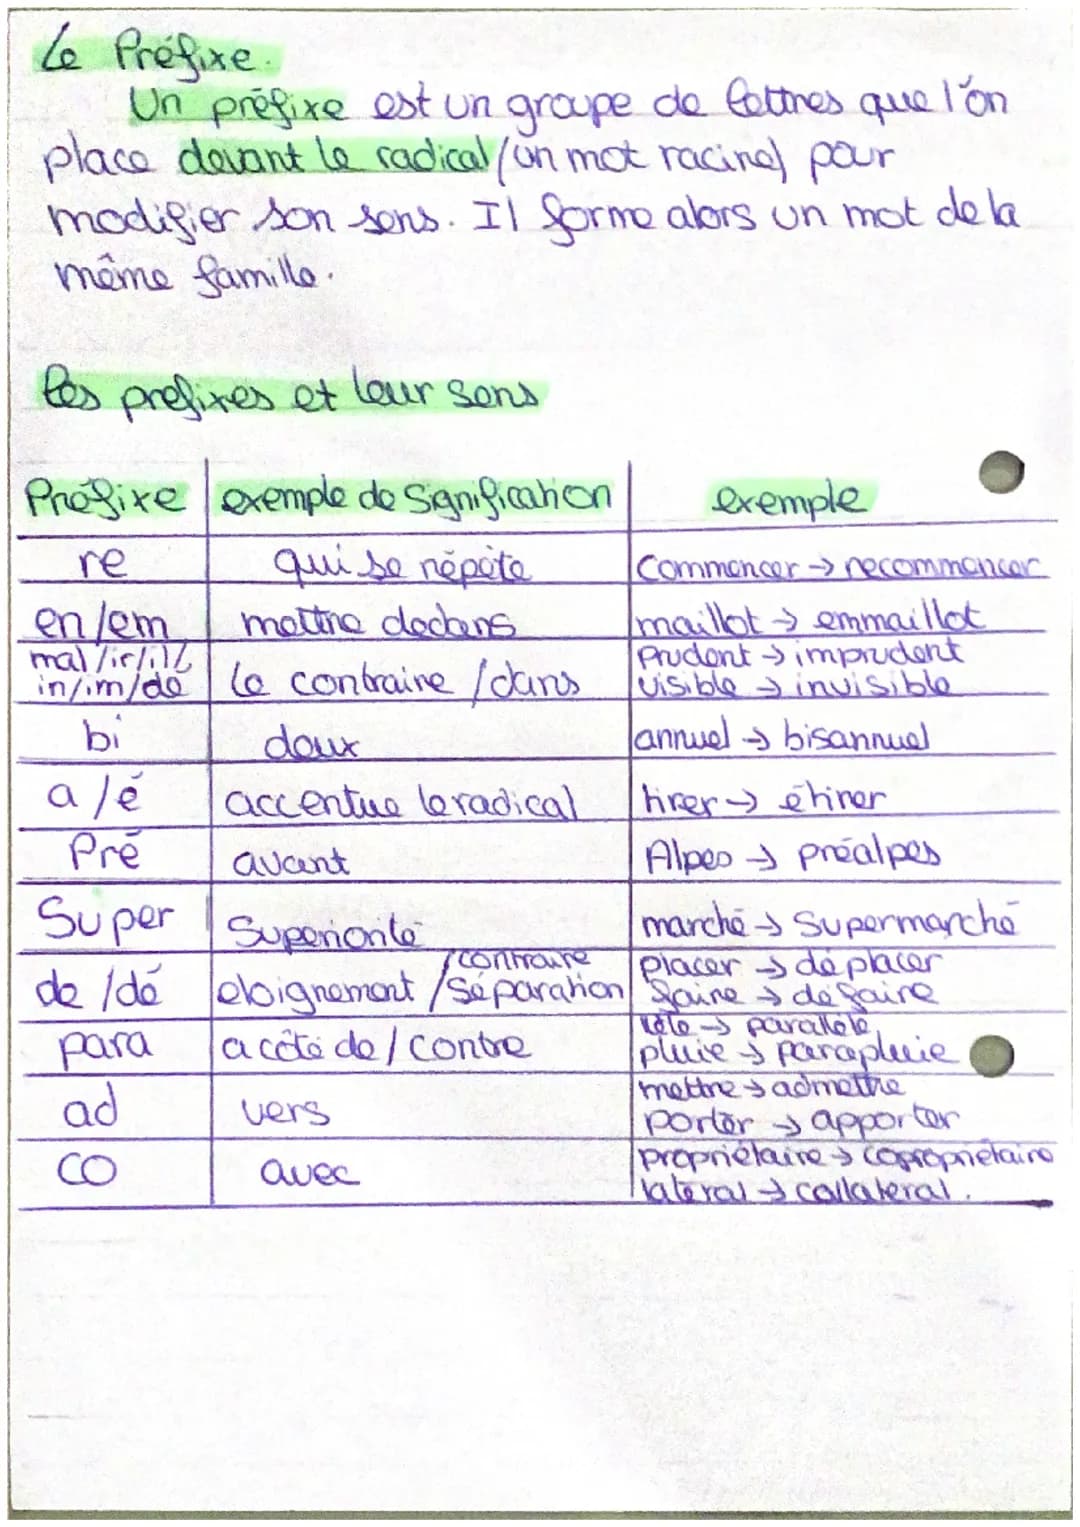 Le Préfixe.
Un préfixe est un groupe de lettres que l'on
place devant le radical (un mot racine) pour
modifier son sens. Il forme alors un mot de la
même famille.
les prefixes et leur sens
Préfixe exemple de Signification exemple
re qui se répète commencer → recommencer
en/em mettre dedans maillot → emmaillot
mal/ir/il/ prudent → imprudent
in/im/dé le contraire /dans visible → invisible
bi deux annuel → bisannuel
a/é accentue le radical tirer → étirer
Pré avant Alpes → préalpes
Super Supériorité marché → Supermarché
/contraire placer → déplacer
de/dé eloignement /Séparation faire → défaire
→ parallèle
para a côté de / contre pluie → parapluie
mettre → admettre
ad vers porter → apporter
propriétaire → copropriétaire
co avec latéral → collatéral.